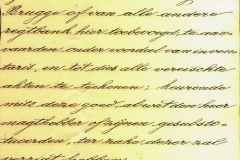 Brugge of van alle andere
regtbank hier toe bevoegd, te aan-
vaarden onder voordeel van inven-
taris, en tot dies alle vereischte
akten te teekenen; keurende
mits deze goed al wat den haar
magthebber of zijnen gesubsti-
tueerden, ter zake dezer zal
verrigt hebben